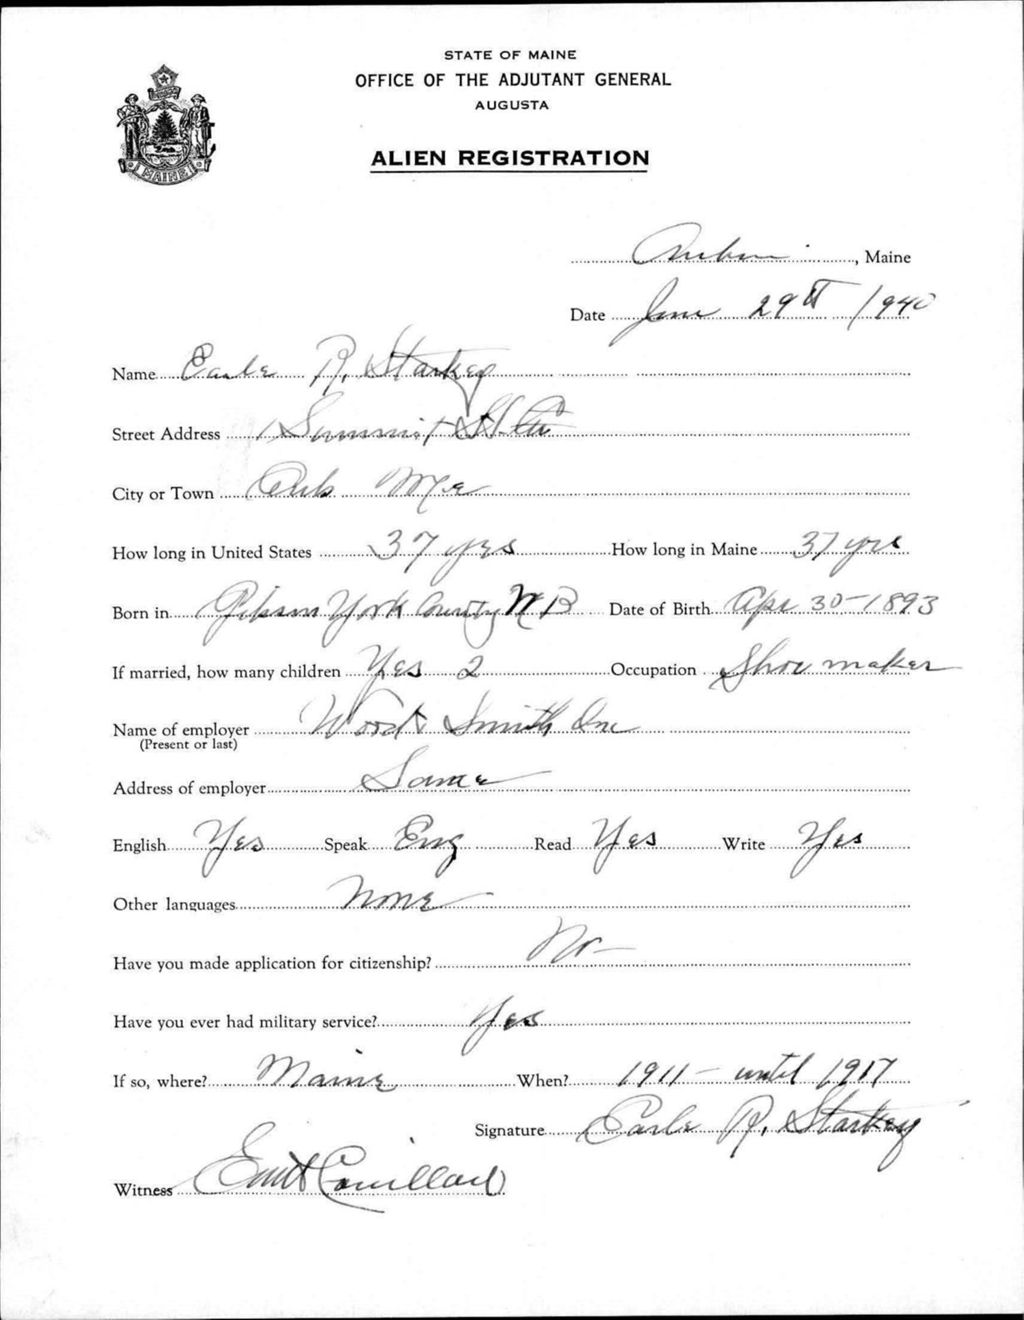 STATE OF MAINE
OFFICE OF THE ADJUTANT GENERAL
AUGUSTA
ALIEN REGISTRATION
MAINE
Auburn, Maine
Date June 29 1940
Name Earle R. Starkey
Street Address 1 Summit St
City or Town Aub Me
How long in United States 37 yrs How long in Maine 37 yrs
Born in Gibson York County N B Date of Birth Apr 30-1893
If married, how many children Yes 2 Occupation Shoe maker
Name of employer Wood & Smith Inc
(Present or last)
Address of employer Same
English Yes Speak Eng Read Yes Write Yes
Other languages None
Have you made application for citizenship? No
Have you ever had military service? Yes
If so, where? Maine When? 1911 - until 1917
Signature Earle R. Starkey
Witness Couillard